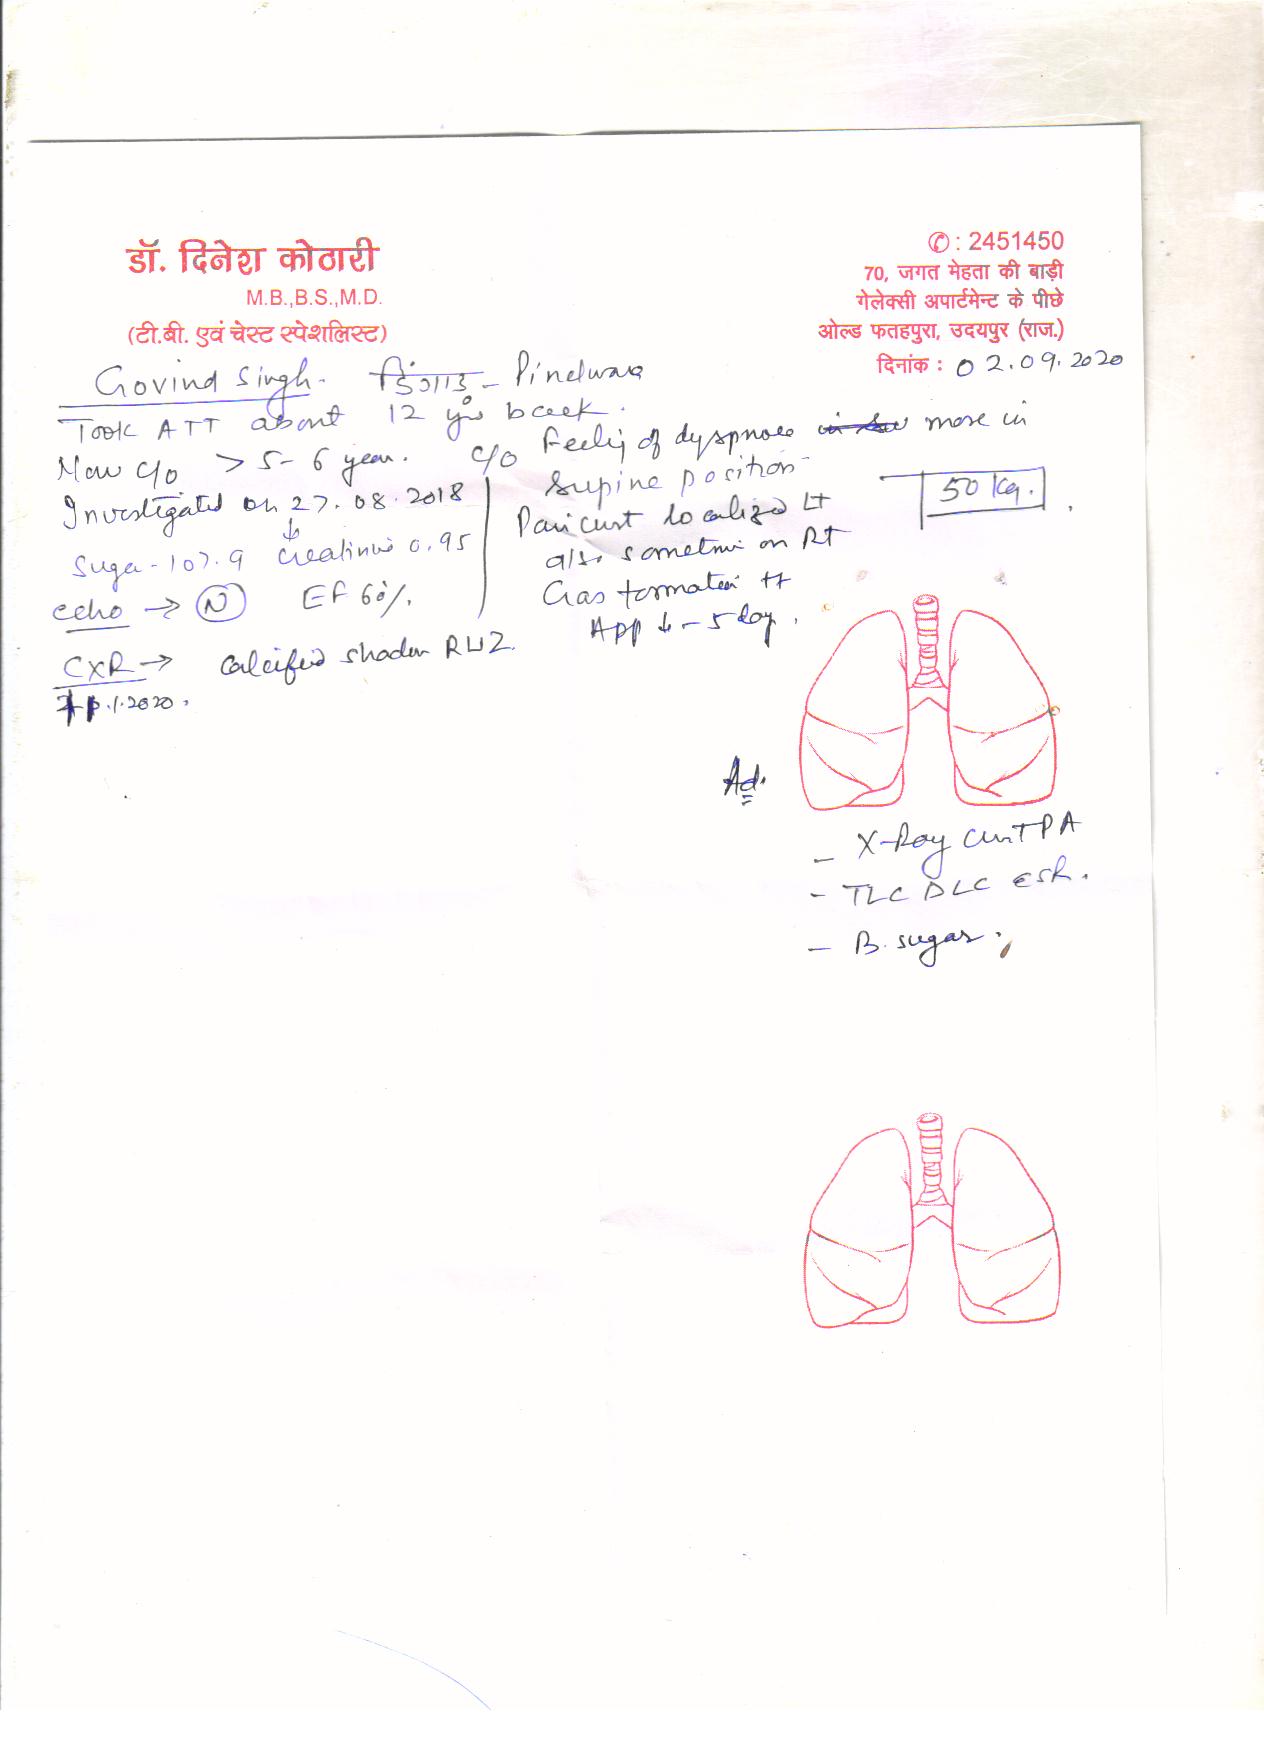 डॉ. दिनेश कोठारी
M.B.,B.S.,M.D.
(टी.बी. एवं चेस्ट स्पेशलिस्ट)
✆ : 2451450
70, जगत मेहता की बाड़ी
गेलेक्सी अपार्टमेन्ट के पीछे
ओल्ड फतहपुरा, उदयपुर (राज.)
दिनांक : 02.09.2020
Govind Singh - Pindwara
Took ATT about 12 yrs back.
Now c/o > 5-6 year.
Investigated on 27.08.2018
↓
Suger - 107.9 creatinine 0.95
echo → (N) EF 60%.
CXR → calcified shadow RUZ
.1.2020.
c/o Feeling of dyspnoea more in
supine position
Pain chest localized Lt
also sometime on Rt
Gas formation ++
App ↓ - 5 day.
50 kg.
Ad.
- X-Ray chest PA
- TLC DLC ESR.
- B. sugar.